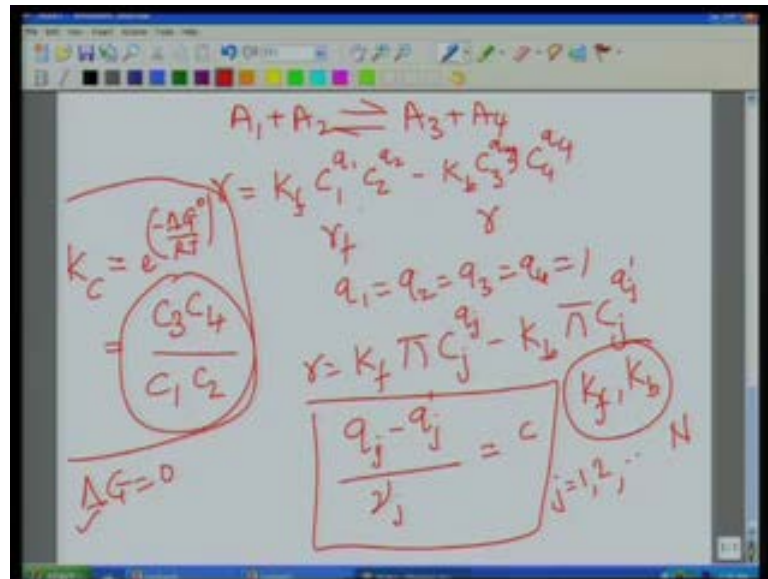 A₁ + A₂ ⇌ A₃ + A₄
r = K_f C₁^q₁ C₂^q₂ - K_b C₃^q₃ C₄^q₄
r_f r
K_C = e^(-ΔG°/RT)
= C₃C₄ / C₁C₂
q₁ = q₂ = q₃ = q₄ = 1
r = K_f π C_j^q_j - K_b π C_j^q_j'
K_f, K_b
(q_j - q_j) / ν_j = c
j=1,2,.. N
ΔG = 0